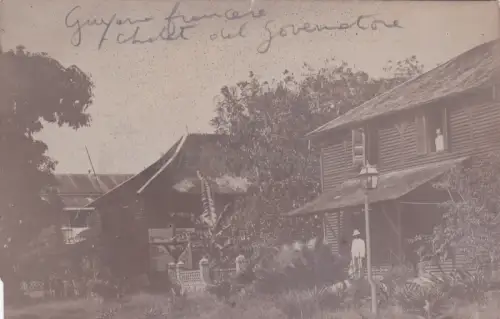 Guyane francese
chalet del Governatore